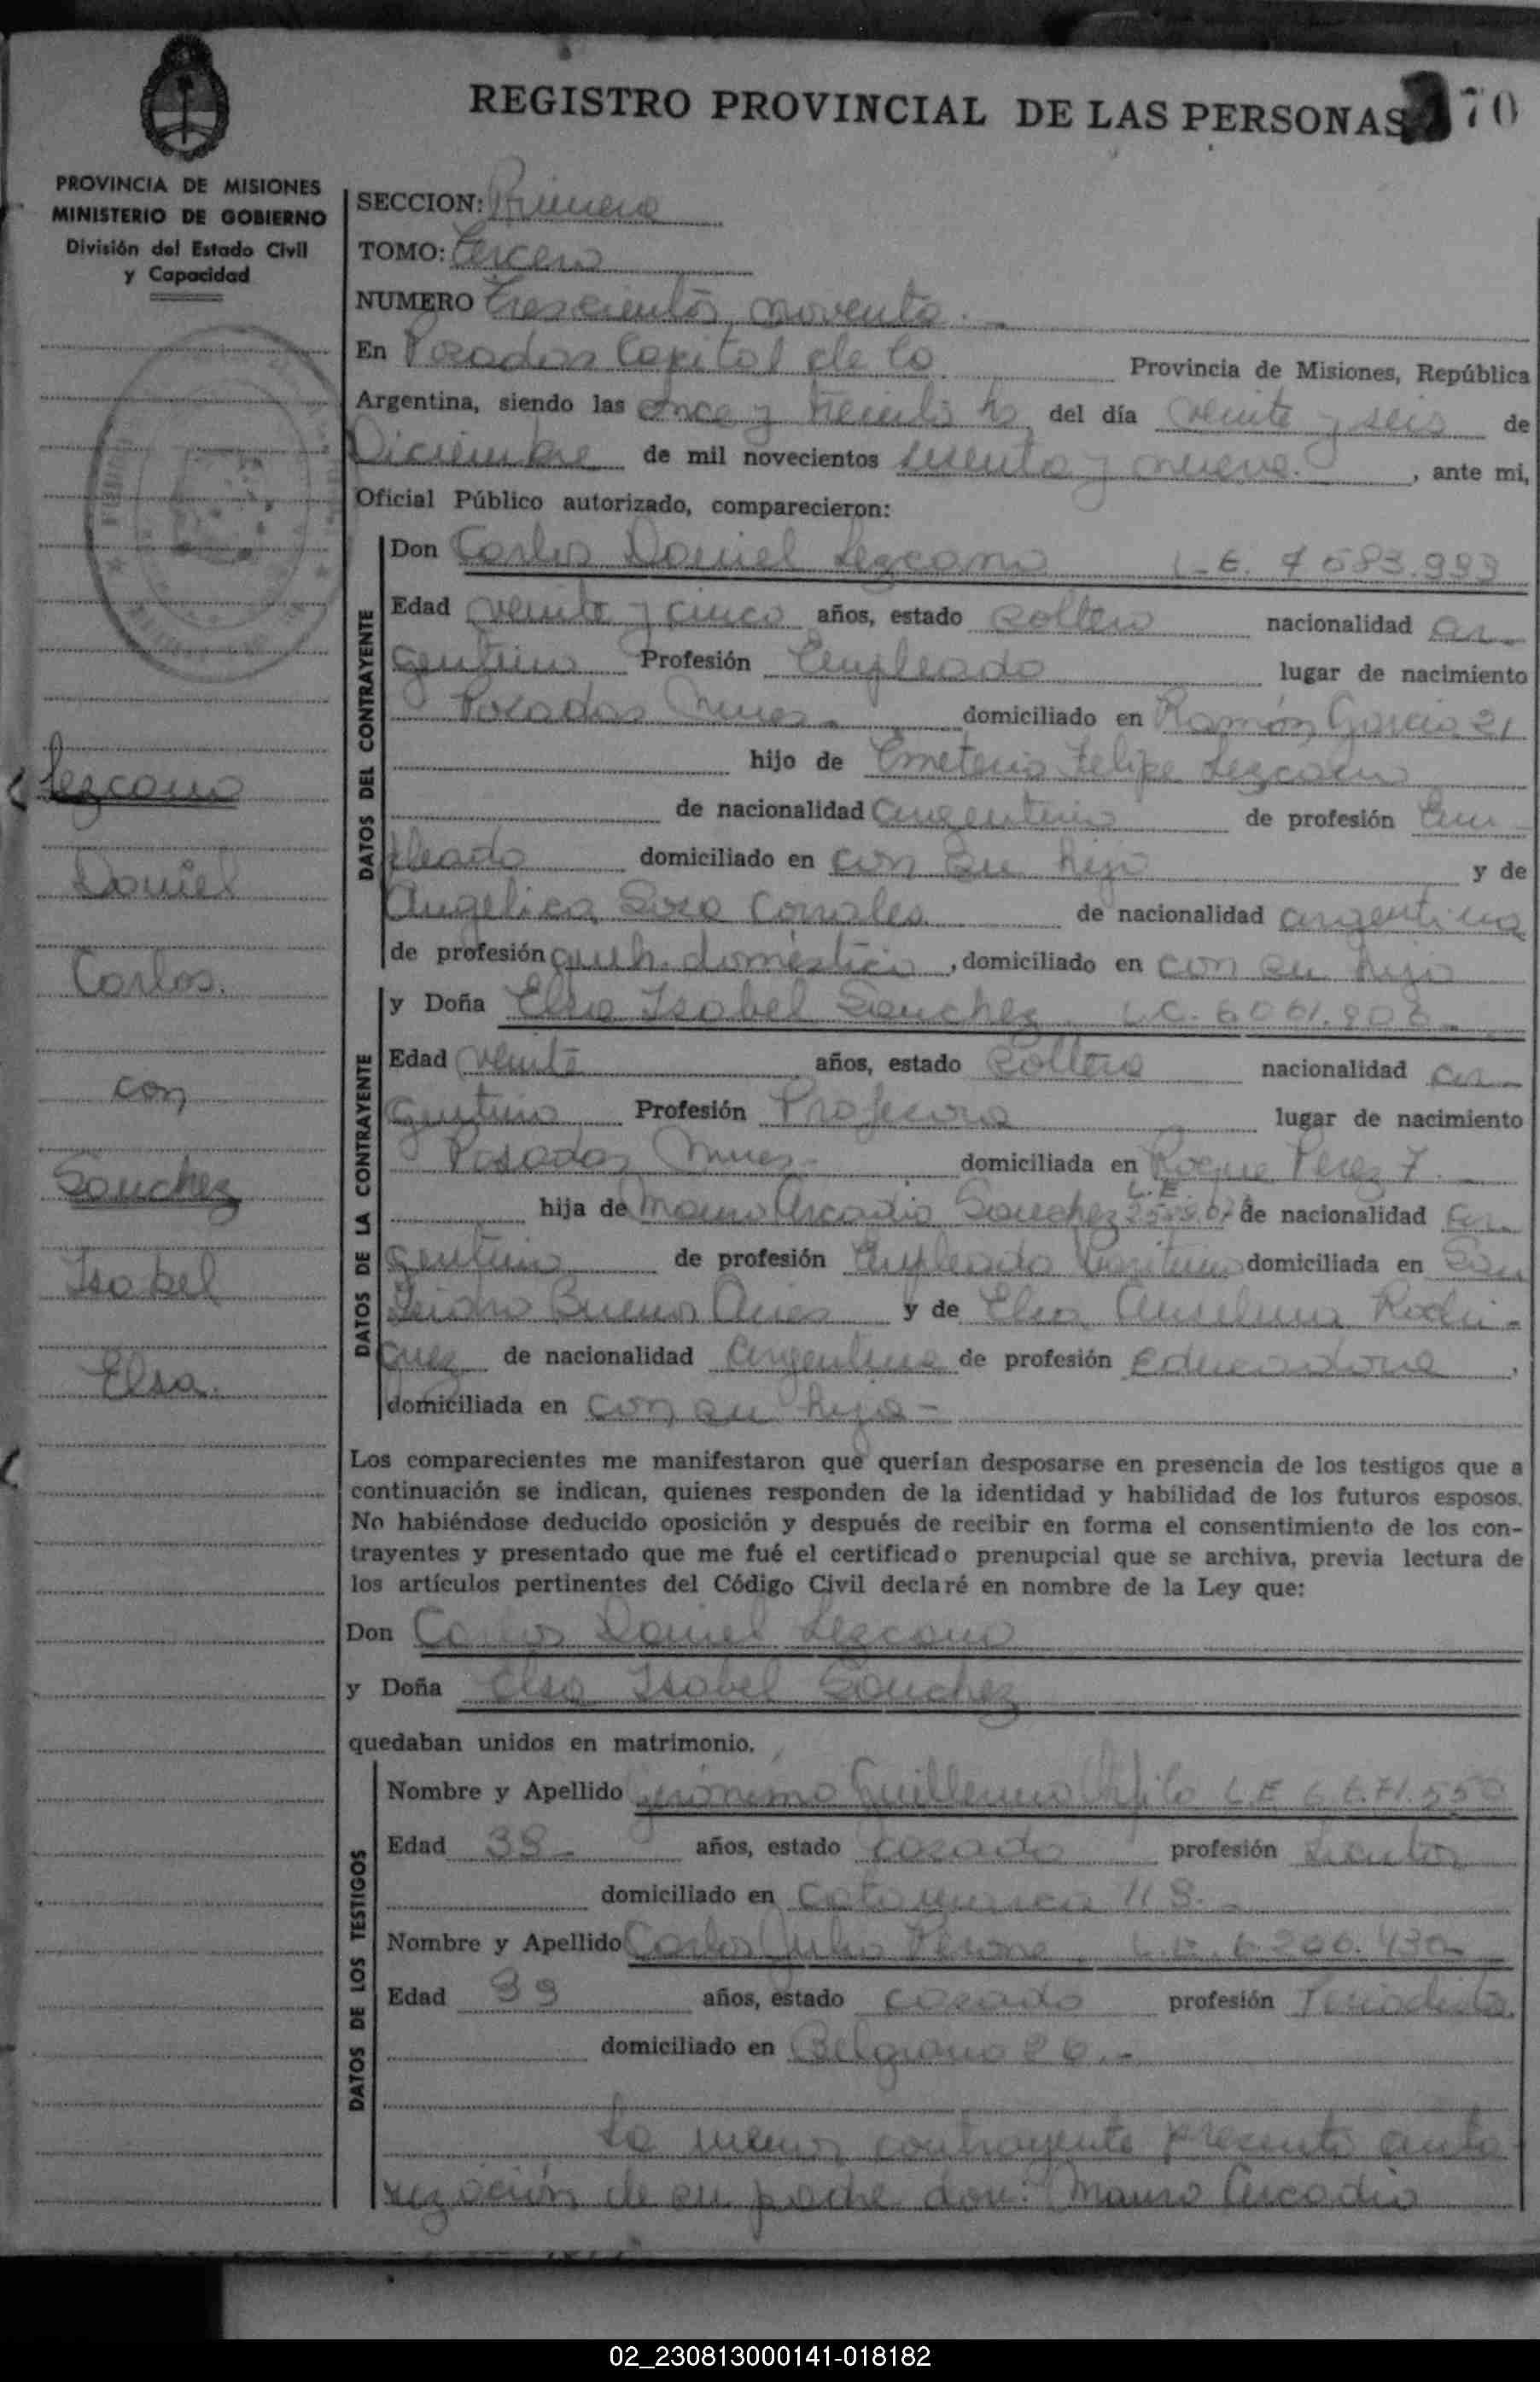 REGISTRO PROVINCIAL DE LAS PERSONAS 70
PROVINCIA DE MISIONES
MINISTERIO DE GOBIERNO
División del Estado Civil
y Capacidad
Lezcano
Daniel
Carlos.
con
Sanchez
Isabel
Elsa.
SECCION: Primera
TOMO: Tercero
NUMERO Trescientos noventa. -
En Posadas Capital de la Provincia de Misiones, República
Argentina, siendo las once y treinta hs del día veinte y seis de
Diciembre de mil novecientos sesenta y nueve. , ante mi,
Oficial Público autorizado, comparecieron:
DATOS DEL CONTRAYENTE
Don Carlos Daniel Lezcano L.E. 7583.993
Edad veinte y cinco años, estado soltero nacionalidad ar-
gentino Profesión Empleado lugar de nacimiento
Posadas Mnes. domiciliado en Ramón Garcia 21
hijo de Emeterio Felipe Lezcano
de nacionalidad argentino de profesión Em-
pleado domiciliado en con su hijo y de
Angelica Sosa de nacionalidad argentina
de profesión queh. domestico , domiciliado en con su hijo
DATOS DE LA CONTRAYENTE
y Doña Elsa Isabel Sanchez L.C. 6061.
Edad veinte años, estado soltera nacionalidad ar-
gentina Profesión Profesora lugar de nacimiento
Posadas Mnes. domiciliada en Roque Perez 7.
hija de Mauro Arcadio Sanchez L.E. de nacionalidad ar
gentino de profesión Empleado domiciliada en San
Isidro Buenos Aires y de Elsa Anselma Rodri-
guez de nacionalidad argentina de profesión Educadora ,
domiciliada en con su hija -
Los comparecientes me manifestaron que querían desposarse en presencia de los testigos que a
continuación se indican, quienes responden de la identidad y habilidad de los futuros esposos.
No habiéndose deducido oposición y después de recibir en forma el consentimiento de los con-
trayentes y presentado que me fué el certificado prenupcial que se archiva, previa lectura de
los artículos pertinentes del Código Civil declaré en nombre de la Ley que:
Don Carlos Daniel Lezcano
y Doña Elsa Isabel Sanchez
quedaban unidos en matrimonio.
DATOS DE LOS TESTIGOS
Nombre y Apellido Gerónimo Guillermo L.E 6.671.550
Edad años, estado casado profesión
domiciliado en Catamarca 118. -
Nombre y Apellido Carlos Julio L.E. 6.206.430-
Edad 39 años, estado casado profesión Periodista
domiciliado en Belgrano 26. -
La menor contrayente presenta auto
rización de su padre don: Mauro Arcadio
02_230813000141-018182